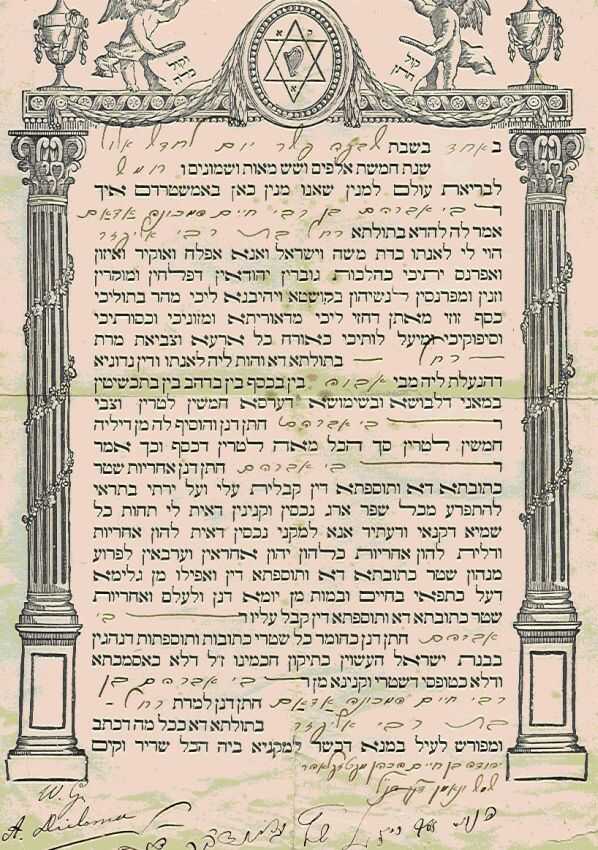 ב באחד בשבת יום לחדש אלול
שנת חמשת אלפים ושש מאות ושמונים ו
לבריאת עולם למנין שאנו מנין כאן באמשטרדם איך
ר בי אברהם בן רבי חיים המכונה אדאם
אמר לה להדא בתולתא רחל בת רבי אליעזר
הוי לי לאנתו כדת משה וישראל ואנא אפלח ואוקיר ואיזון
ואפרנס יתיכי כהלכות גוברין יהודאין דפלחין ומוקרין
וזנין ומפרנסין לנשיהון בקושטא ויהיבנא ליכי מהר בתוליכי
כסף זוזי מאתן דחזי ליכי מדאורייתא ומזוניכי וכסותיכי
וסיפוקיכי ומיעל לותיכי כאורח כל ארעא וצביאת מרת
רחל בתולתא דא והות ליה לאנתו ודין נדוניא
דהנעלת ליה מבי אבוה בין בכסף בין בדהב בין בתכשיטין
במאני דלבושא ובשימושא דערסא חמשין לטרין וצבי
ר בי אברהם חתן דנן והוסיף לה מן דיליה
חמשין לטרין סך הכל מאה לטרין דכסף וכך אמר
ר בי אברהם חתן דנן אחריות שטר
כתובתא דא ותוספתא דין קבלית עלי ועל ירתי בתראי
להתפרע מכל שפר ארג נכסין וקנינין דאית לי תחות כל
שמיא דקנאי ודעתיד אנא למקני נכסין דאית להון אחריות
ודלית להון אחריות כלהון יהון אחראין וערבאין לפרוע
מנהון שטר כתובתא דא ותוספתא דין ואפילו מן גלימא
דעל כתפאי בחיים ובמות מן יומא דנן ולעלם ואחריות
שטר כתובתא דא ותוספתא דין קבל עליו ר בי
אברהם חתן דנן כחומר כל שטרי כתובות ותוספתות דנהגין
בבנת ישראל העשוין כתיקון חכמינו ז״ל דלא כאסמכתא
ודלא כטופסי דשטרי וקנינא מן ר בי אברהם בן
רבי חיים המכונה אדאם חתן דנן למרת רחל
בת רבי אליעזר בתולתא דא ככל מה דכתב
ומפורש לעיל במנא דכשר למקניא ביה הכל שריר וקים
יהודה בן חיים הכהן
W. G
A.